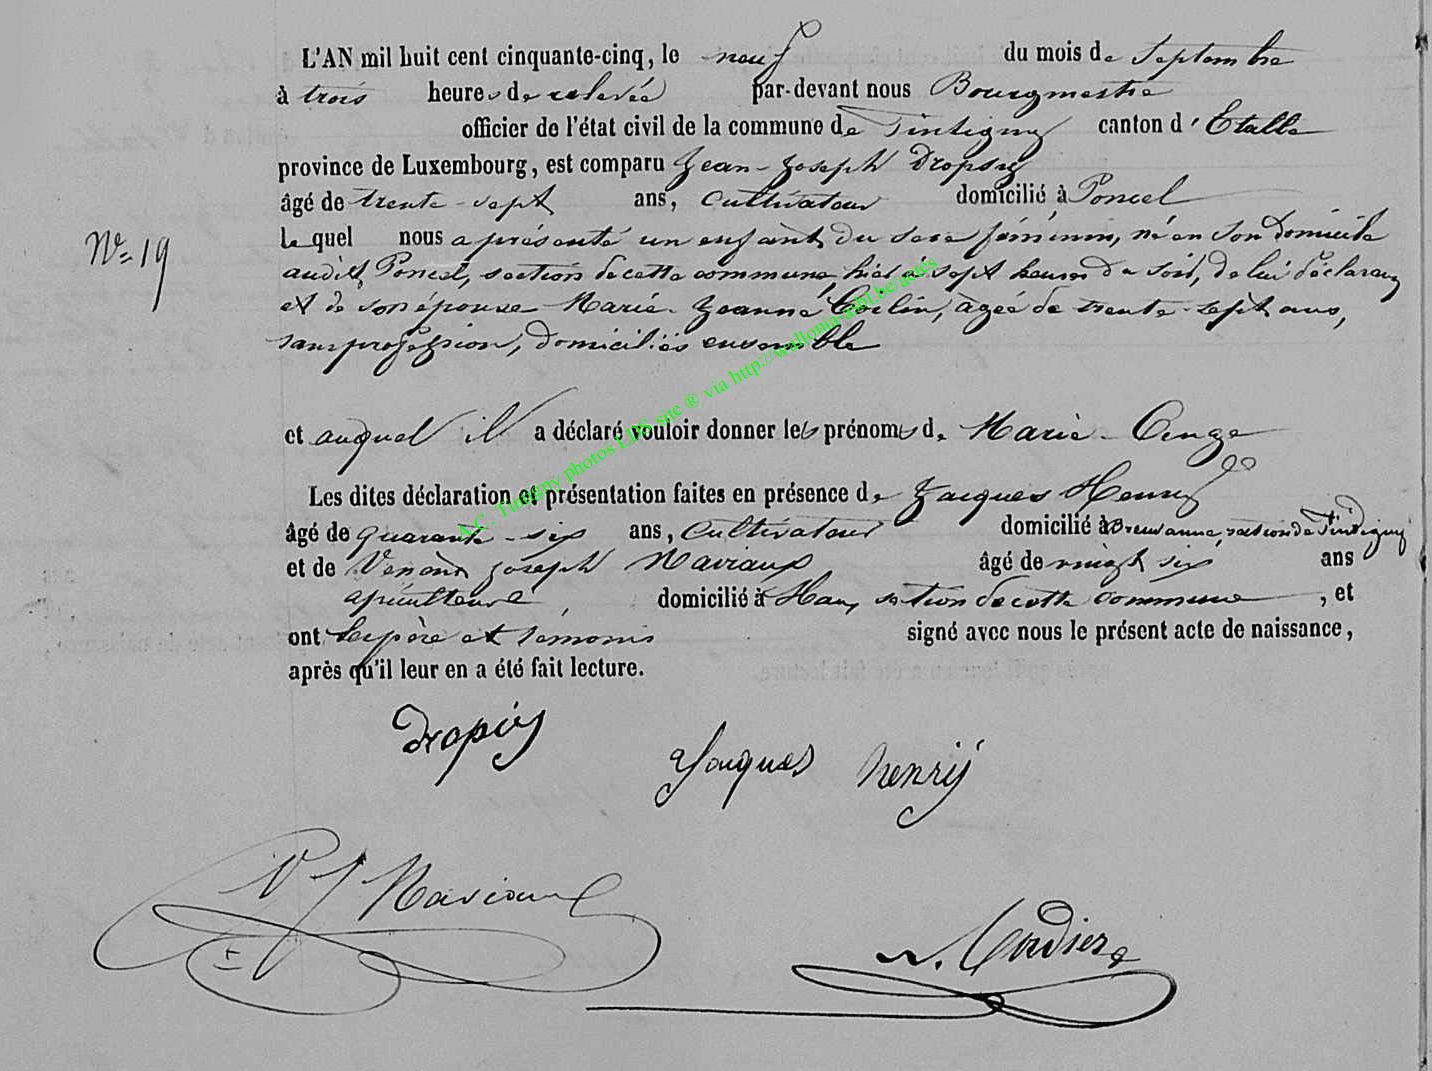 L'AN mil huit cent cinquante-cinq, le neuf du mois de Septembre
à trois heures de relevée par-devant nous Bourgmestre
officier de l'état civil de la commune de Tintigny canton d'Etalle
province de Luxembourg, est comparu Jean-Joseph Dropsy
âgé de trente-sept ans, cultivateur domicilié à Poncel
Le quel nous a présenté un enfant du sexe féminin, né en son domicile
audit Poncel, section de cette commune, hier à sept heures du soir, de lui déclarant
et de son épouse Marie-Jeanne Collin, agée de trente-sept ans,
sans profession, domiciliés ensemble
N° 19
et auquel il a déclaré vouloir donner les prénoms de Marie-
Les dites déclaration et présentation faites en présence de Jacques Henry
âgé de quarante-six ans, cultivateur domicilié à Breuvanne, section de Tintigny
et de Joseph âgé de vingt six ans
domicilié à Han, section de cette commune, et
ont les père et témoins signé avec nous le présent acte de naissance,
après qu'il leur en a été fait lecture.
Dropsy
Jacques henrij
V J
N. Cordier
A.C. Tintigny photos LDS site ® via http://wallonia-asbl.be/actes